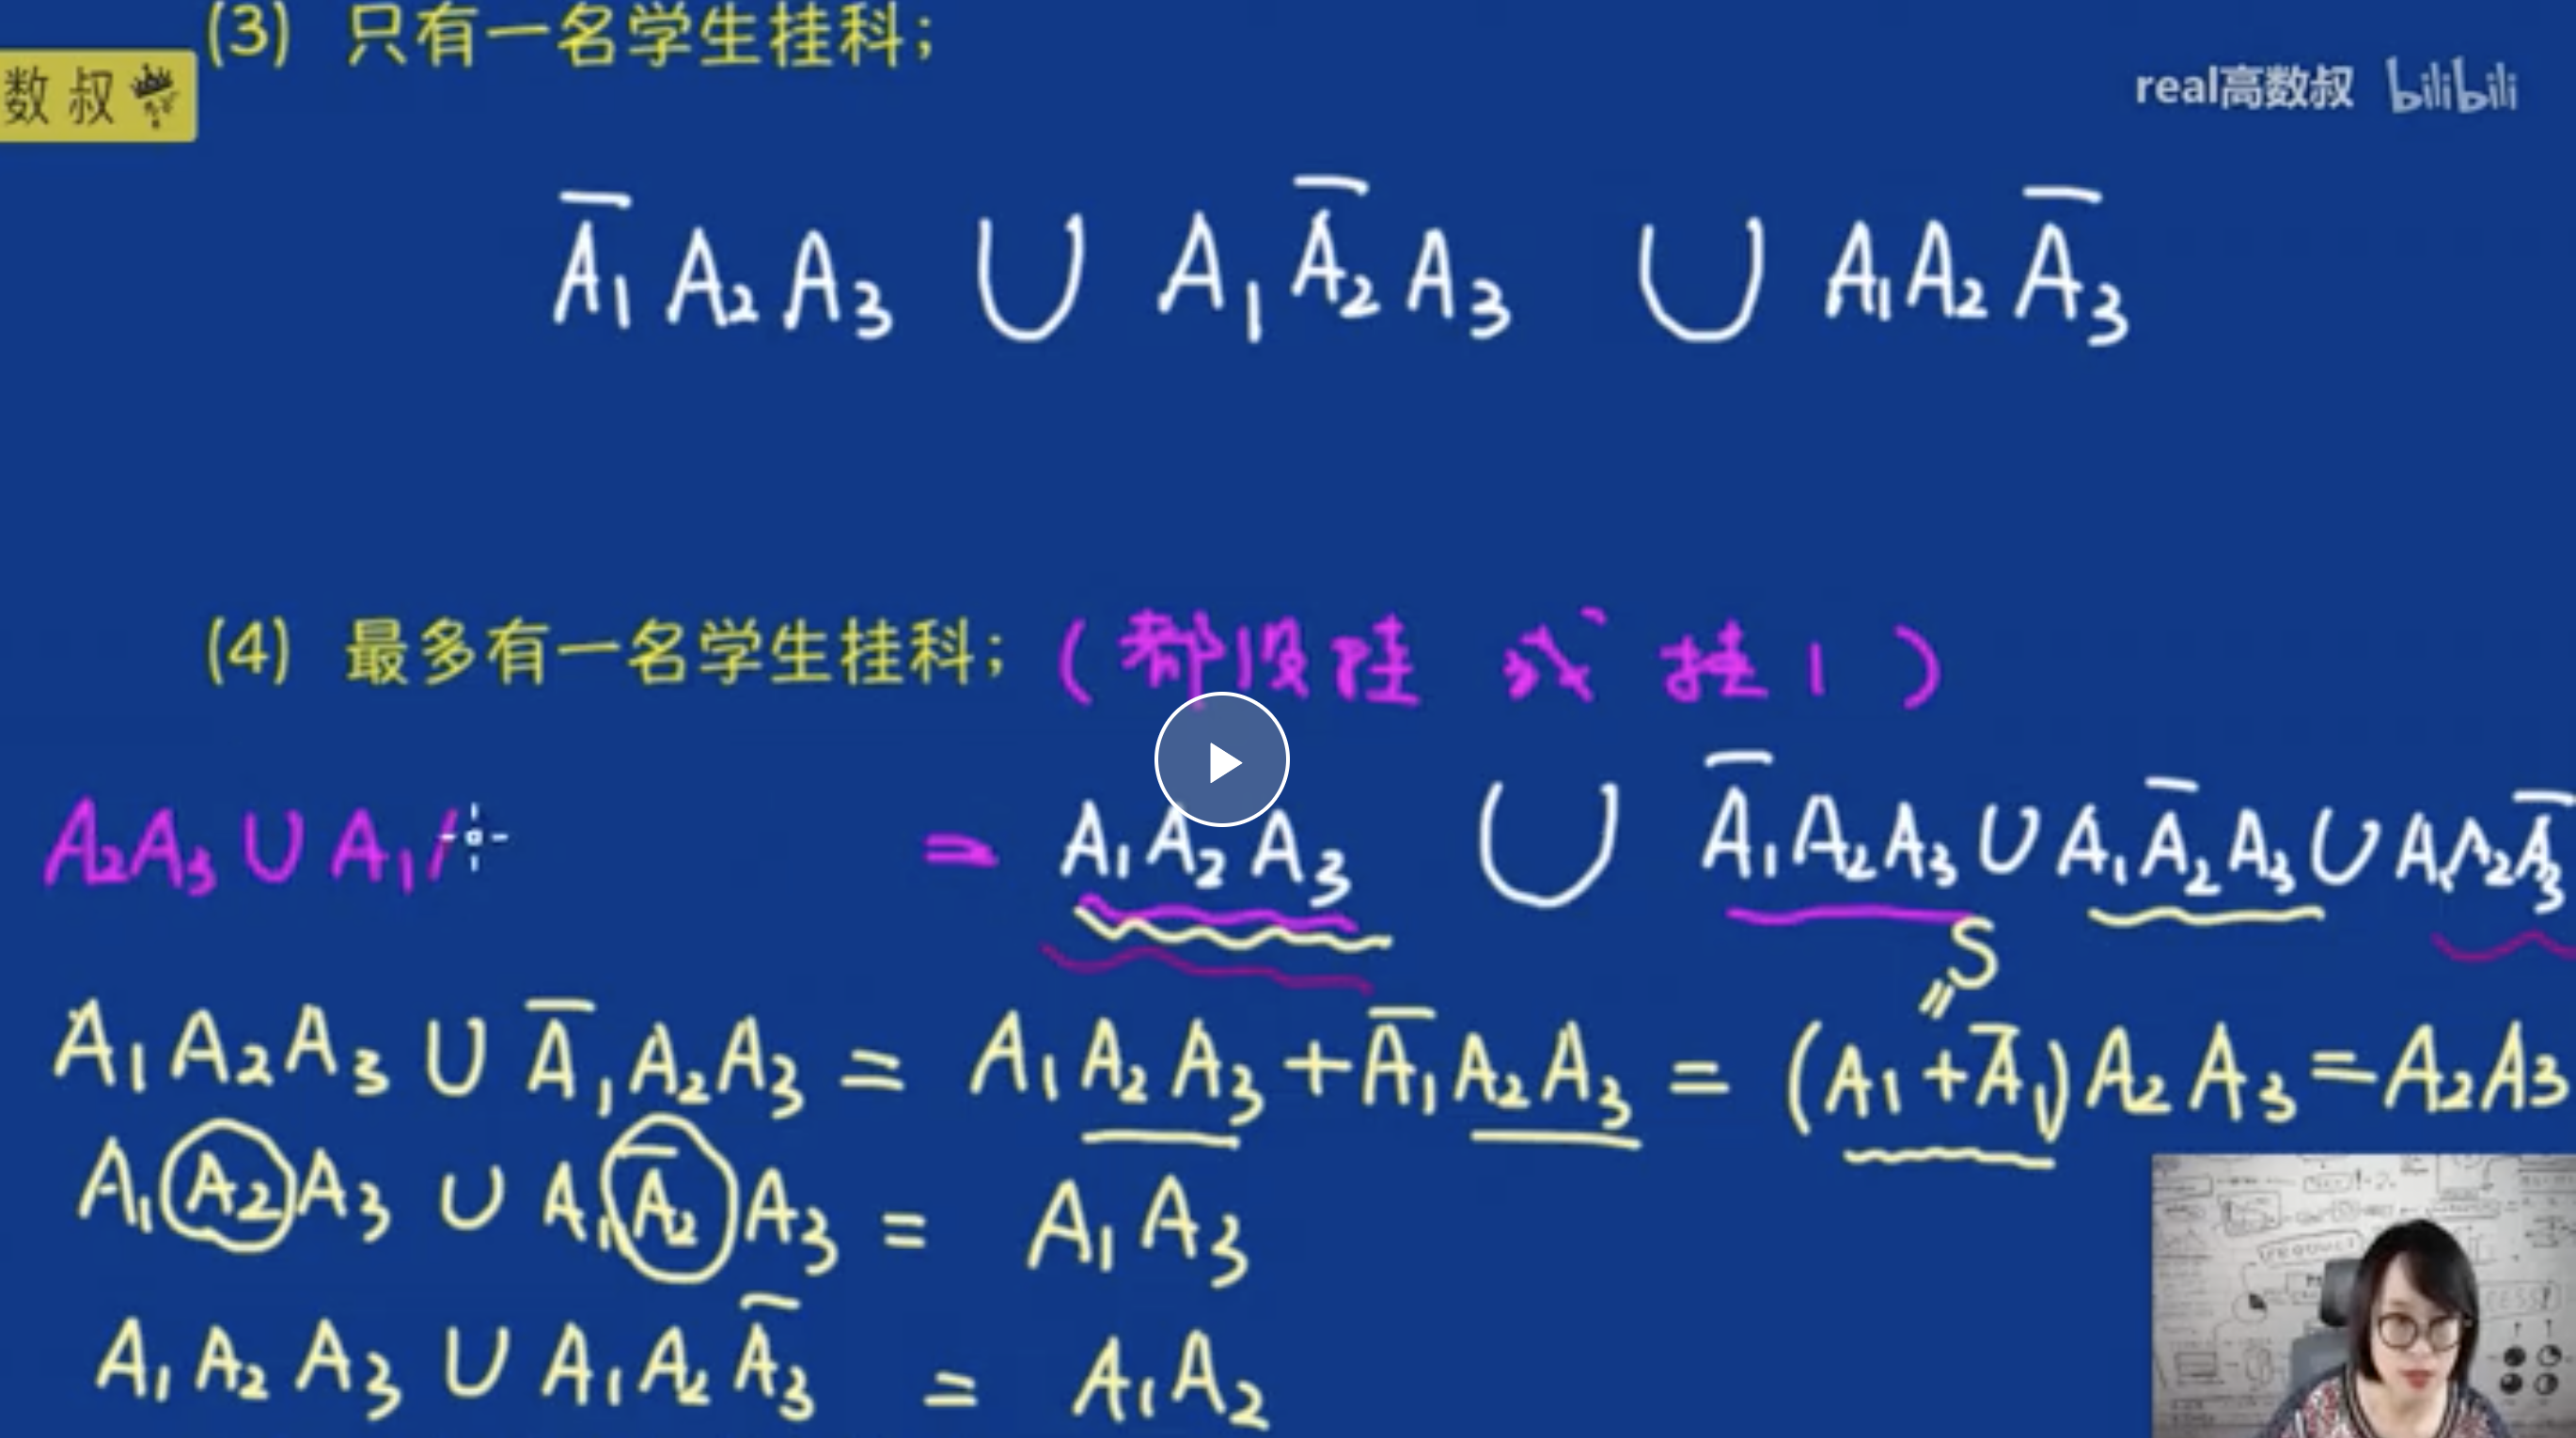 (3) 只有一名学生挂科；
数叔
real高数叔 bilibili
A̅₁A₂A₃ ∪ A₁A̅₂A₃ ∪ A₁A₂A̅₃
(4) 最多有一名学生挂科； (都没挂 或 挂1)
A₂A₃ ∪ A₁ = A₁A₂A₃ ∪ A̅₁A₂A₃ ∪ A₁A̅₂A₃ ∪ A₁A₂A̅₃
S
=
A₁A₂A₃ ∪ A̅₁A₂A₃ = A₁A₂A₃ + A̅₁A₂A₃ = (A₁+A̅₁)A₂A₃ = A₂A₃
A₁A₂A₃ ∪ A₁A̅₂A₃ = A₁A₃
A₁A₂A₃ ∪ A₁A₂A̅₃ = A₁A₂